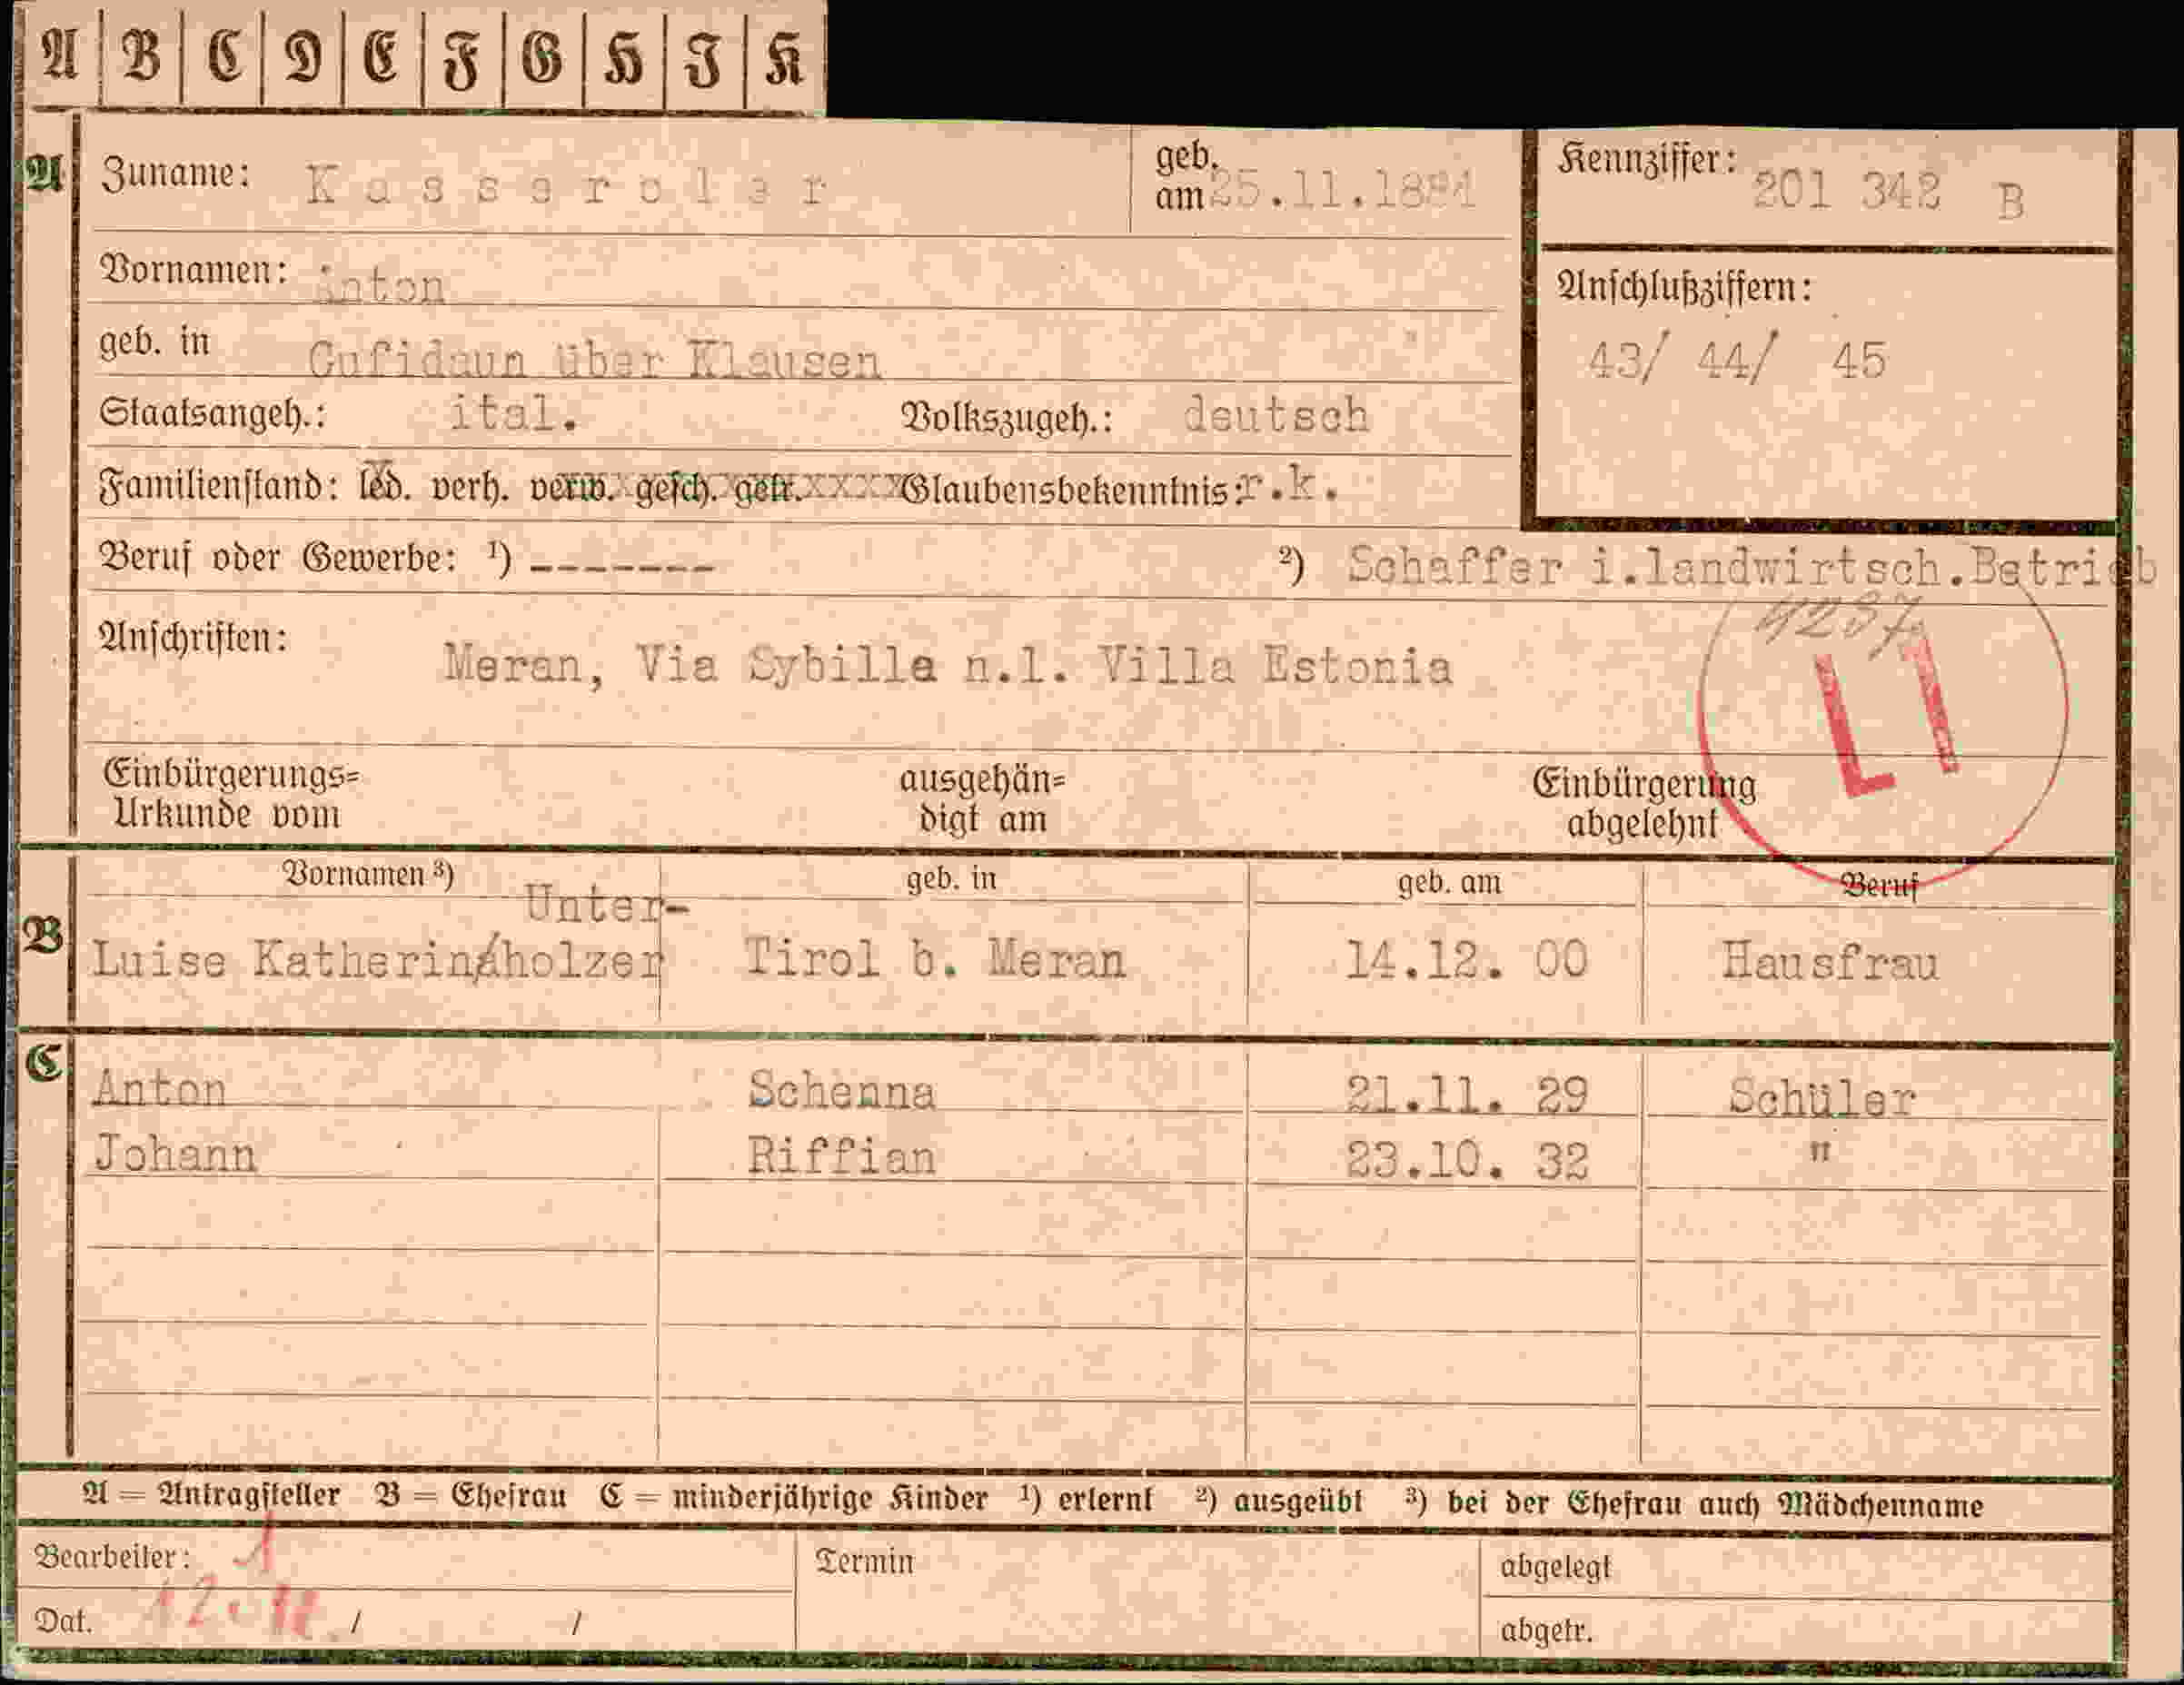 A B C D E F G H J K
A Zuname: Kasseroler geb. am 25.11.1891 Kennziffer: 201 342 B
Vornamen: Anton
geb. in Gufidaun über Klausen
Anschlußziffern:
43/ 44/ 45
Staatsangeh.: ital. Volkszugeh.: deutsch
Familienstand: led. verh. verw. gesch. getr. Glaubensbekenntnis: r.k.
Beruf oder Gewerbe: ¹) ------- ²) Schaffer i.landwirtsch.Betrieb
Anschriften: Meran, Via Sybilla n.l. Villa Estonia
L I
Einbürgerungs= ausgehän= Einbürgerung
Urkunde vom digt am abgelehnt
Vornamen ³) geb. in geb. am Beruf
Unter-
B Luise Katherina/holzer Tirol b. Meran 14.12. 00 Hausfrau
C Anton Schenna 21.11. 29 Schüler
Johann Riffian 23.10. 32 "
A = Antragsteller B = Ehefrau C = minderjährige Kinder ¹) erlernt ²) ausgeübt ³) bei der Ehefrau auch Mädchenname
Bearbeiter: 1 Termin abgelegt
Dat. / / abgetr.